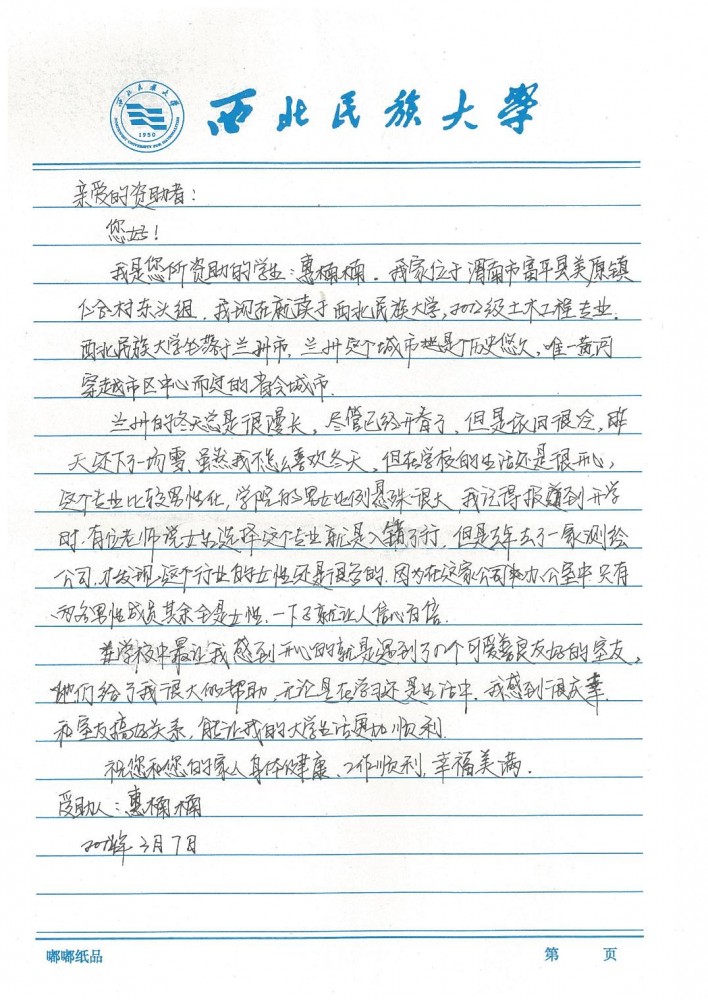 西北民族大学
NORTHWEST UNIVERSITY FOR NATIONALITIES
1950
西北民族大學
亲爱的资助者:
您好!
我是您所资助的学生:惠楠楠. 我家位于渭南市富平县美原镇
仁合村东头组. 我现在就读于西北民族大学,2022级土木工程专业.
西北民族大学坐落于兰州市, 兰州这个城市也是个历史悠久, 唯一黄河
穿越市区中心而过的省会城市.
兰州的冬天总是很漫长, 尽管已经开春了, 但是依旧很冷, 昨
天还下了一场雪. 虽然我不怎么喜欢冬天, 但在学校的生活还是很开心,
这个专业比较男性化, 学院的男女比例悬殊很大, 我记得报到开学
时. 有位老师说女生选择这个专业就是入错了行. 但是去了一家测绘
公司. 才发现这个行业的女性还是很多的. 因为在这家公司办公室中只有
两名男性成员其余全是女性. 一下子就让人信心百倍.
在学校中最让我感到开心的就是遇到了个可爱善良友好的室友,
她们给了我很大的帮助. 无论是在学习还是生活中. 我感到很庆幸.
和室友搞好关系, 能让我的大学生活更加顺利.
祝您和您的家人身体健康、工作顺利, 幸福美满.
受助人:惠楠楠
2024年3月7日
嘟嘟纸品 第 页